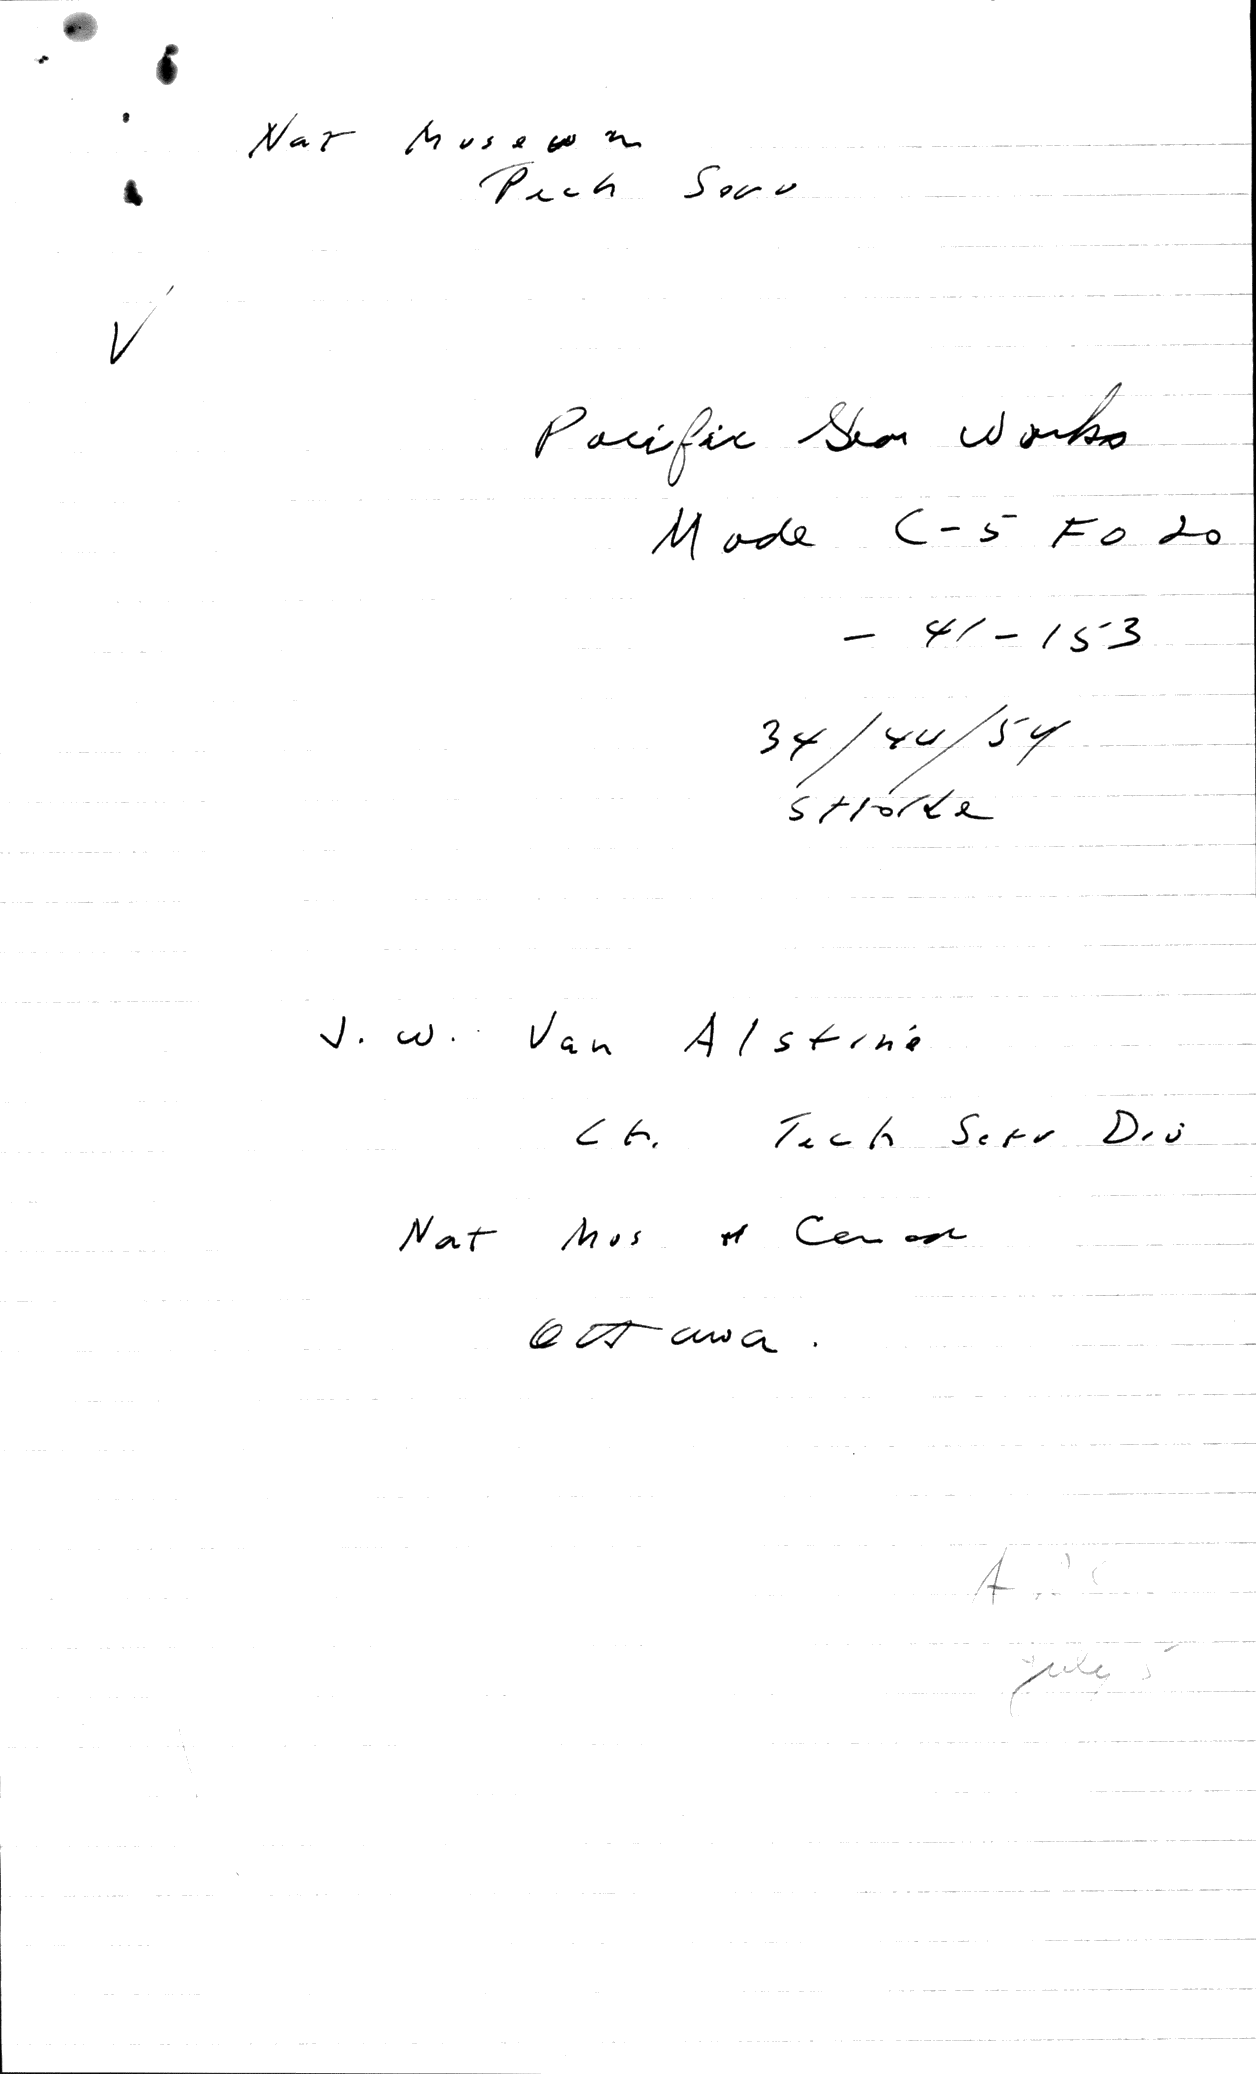 Nat Museum
Tech Serv
Pacific Gear Works
Mode C-5 FO 20
- 41-153
34/44/54
stroke
J. W. Van Alstine
Ch. Tech Serv Div
Nat Mus of Canad
Ottawa.
A
July 5